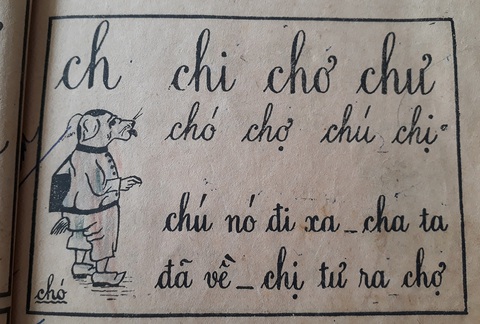 ch chi chơ chư
chó chợ chú chị
chú nó đi xa _ cha ta
đã về _ chị tư ra chợ
chó